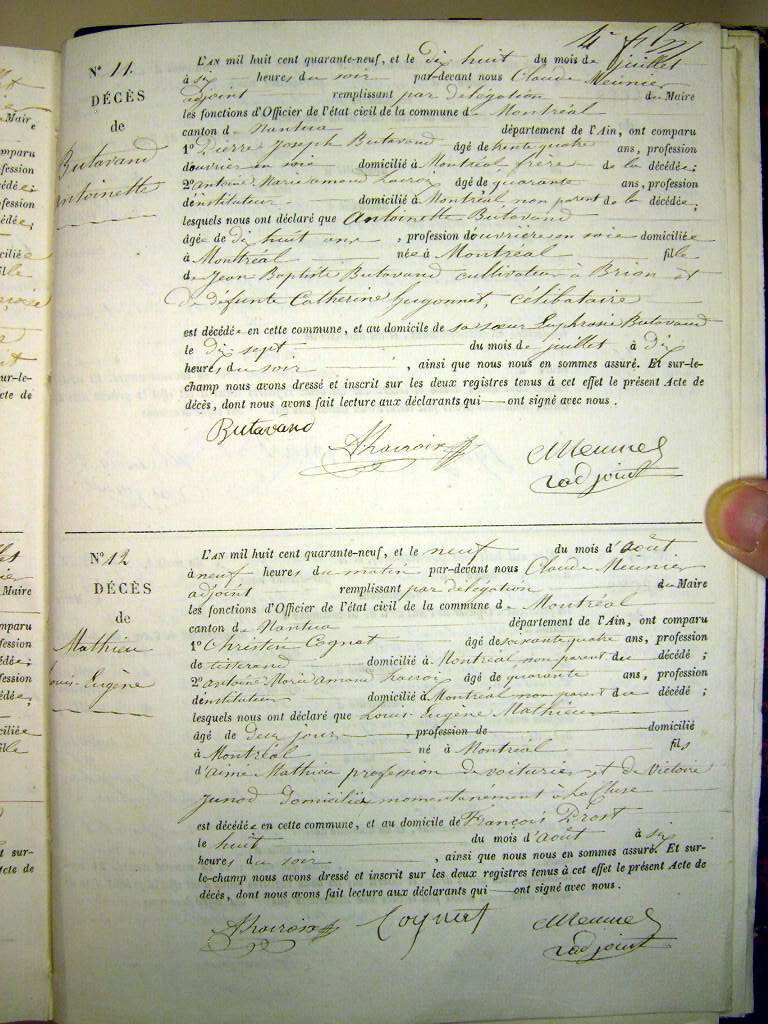 N° 11.
DÉCÈS
de
Butavand
Antoinette
L'AN mil huit cent quarante-neuf, et le dix huit du mois de juillet
à six heures du soir par-devant nous Claude Meunier
adjoint remplissant par délégation du Maire
les fonctions d'Officier de l'état civil de la commune de Montréal
canton de Nantua département de l'Ain, ont comparu
1° Pierre Joseph Butavand âgé de trente quatre ans, profession
d'ouvrier en soie domicilié à Montréal, frère de la décédée;
2° Antoine Marie amand âgé de quarante ans, profession
d'instituteur domicilié à Montréal, non parent de la décédée;
lesquels nous ont déclaré que Antoinette Butavand
âgée de dix huit ans, profession d'ouvrière en soie domiciliée
à Montréal née à Montréal fille
de Jean Baptiste Butavand cultivateur à Brion et
de défunte Catherine Gugonnet, célibataire
est décédée en cette commune, et au domicile de sa sœur Euphrosie Butavand
le dix sept du mois de juillet à dix
heures du soir, ainsi que nous nous en sommes assuré. Et sur-le-
champ nous avons dressé et inscrit sur les deux registres tenus à cet effet le présent Acte de
décès, dont nous avons fait lecture aux déclarants qui ont signé avec nous.
Butavand
CMeunier
adjoint
N° 12
DÉCÈS
de
Mathieu
Louis-Eugène
L'AN mil huit cent quarante-neuf, et le neuf du mois d'août
à neuf heures du matin par-devant nous Claude Meunier
adjoint remplissant par délégation du Maire
les fonctions d'Officier de l'état civil de la commune de Montréal
canton de Nantua département de l'Ain, ont comparu
1° Christin Cognat âgé de soixante quatre ans, profession
de tisserand domicilié à Montréal non parent du décédé;
2° Antoine Marie amand âgé de quarante ans, profession
d'instituteur domicilié à Montréal non parent du décédé;
lesquels nous ont déclaré que Louis-Eugène Mathieu
âgé de deux jours, profession de domicilié
à Montréal né à Montréal fils
d'aimé Mathieu profession de voiturier et de Victoire
Junod domiciliés momentanément à La Cluse
est décédée en cette commune, et au domicile de François Prost
le huit du mois d'août à six
heures du soir, ainsi que nous nous en sommes assuré. Et sur-
le-champ nous avons dressé et inscrit sur les deux registres tenus à cet effet le présent Acte de
décès, dont nous avons fait lecture aux déclarants qui ont signé avec nous.
CMeunier
adjoint